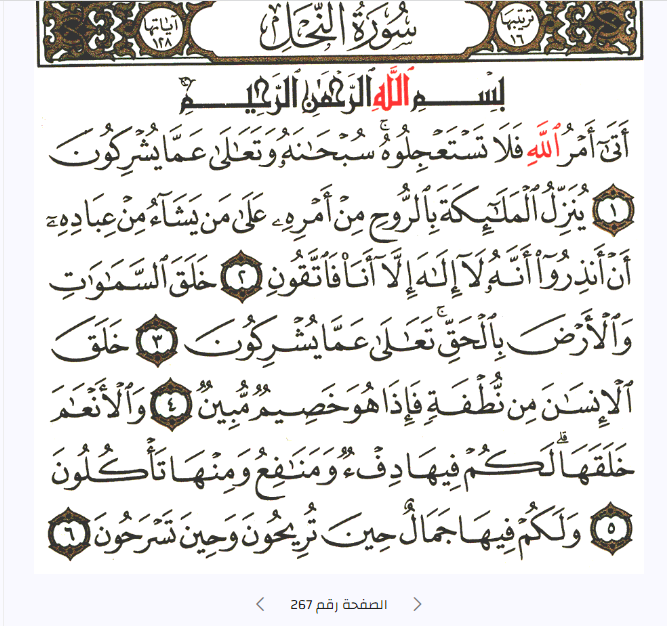 ترتيبها ١٦ سُورَةُ النَّحْلِ آياتها ١٢٨
بِسْمِ ٱللَّهِ ٱلرَّحْمَٰنِ ٱلرَّحِيمِ
أَتَىٰٓ أَمْرُ ٱللَّهِ فَلَا تَسْتَعْجِلُوهُ ۚ سُبْحَٰنَهُۥ وَتَعَٰلَىٰ عَمَّا يُشْرِكُونَ
١ يُنَزِّلُ ٱلْمَلَٰٓئِكَةَ بِٱلرُّوحِ مِنْ أَمْرِهِۦ عَلَىٰ مَن يَشَآءُ مِنْ عِبَادِهِۦٓ
أَنْ أَنذِرُوٓا۟ أَنَّهُۥ لَآ إِلَٰهَ إِلَّآ أَنَا۠ فَٱتَّقُونِ ٢ خَلَقَ ٱلسَّمَٰوَٰتِ
وَٱلْأَرْضَ بِٱلْحَقِّ ۚ تَعَٰلَىٰ عَمَّا يُشْرِكُونَ ٣ خَلَقَ
ٱلْإِنسَٰنَ مِن نُّطْفَةٍ فَإِذَا هُوَ خَصِيمٌ مُّبِينٌ ٤ وَٱلْأَنْعَٰمَ
خَلَقَهَا ۗ لَكُمْ فِيهَا دِفْءٌ وَمَنَٰفِعُ وَمِنْهَا تَأْكُلُونَ
٥ وَلَكُمْ فِيهَا جَمَالٌ حِينَ تُرِيحُونَ وَحِينَ تَسْرَحُونَ ٦
الصفحة رقم 267